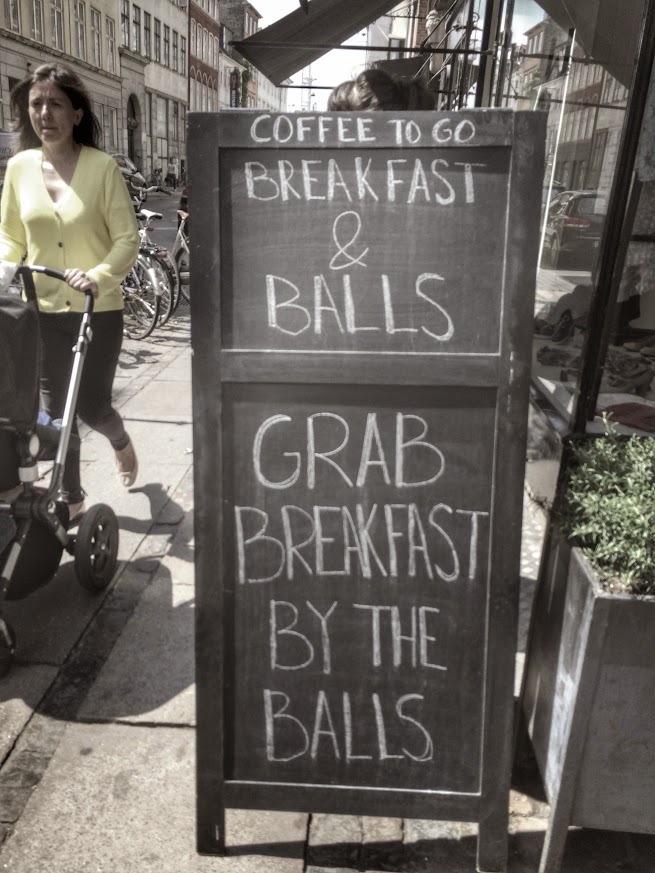 COFFEE TO GO
BREAKFAST
&
BALLS
GRAB
BREAKFAST
BY THE
BALLS